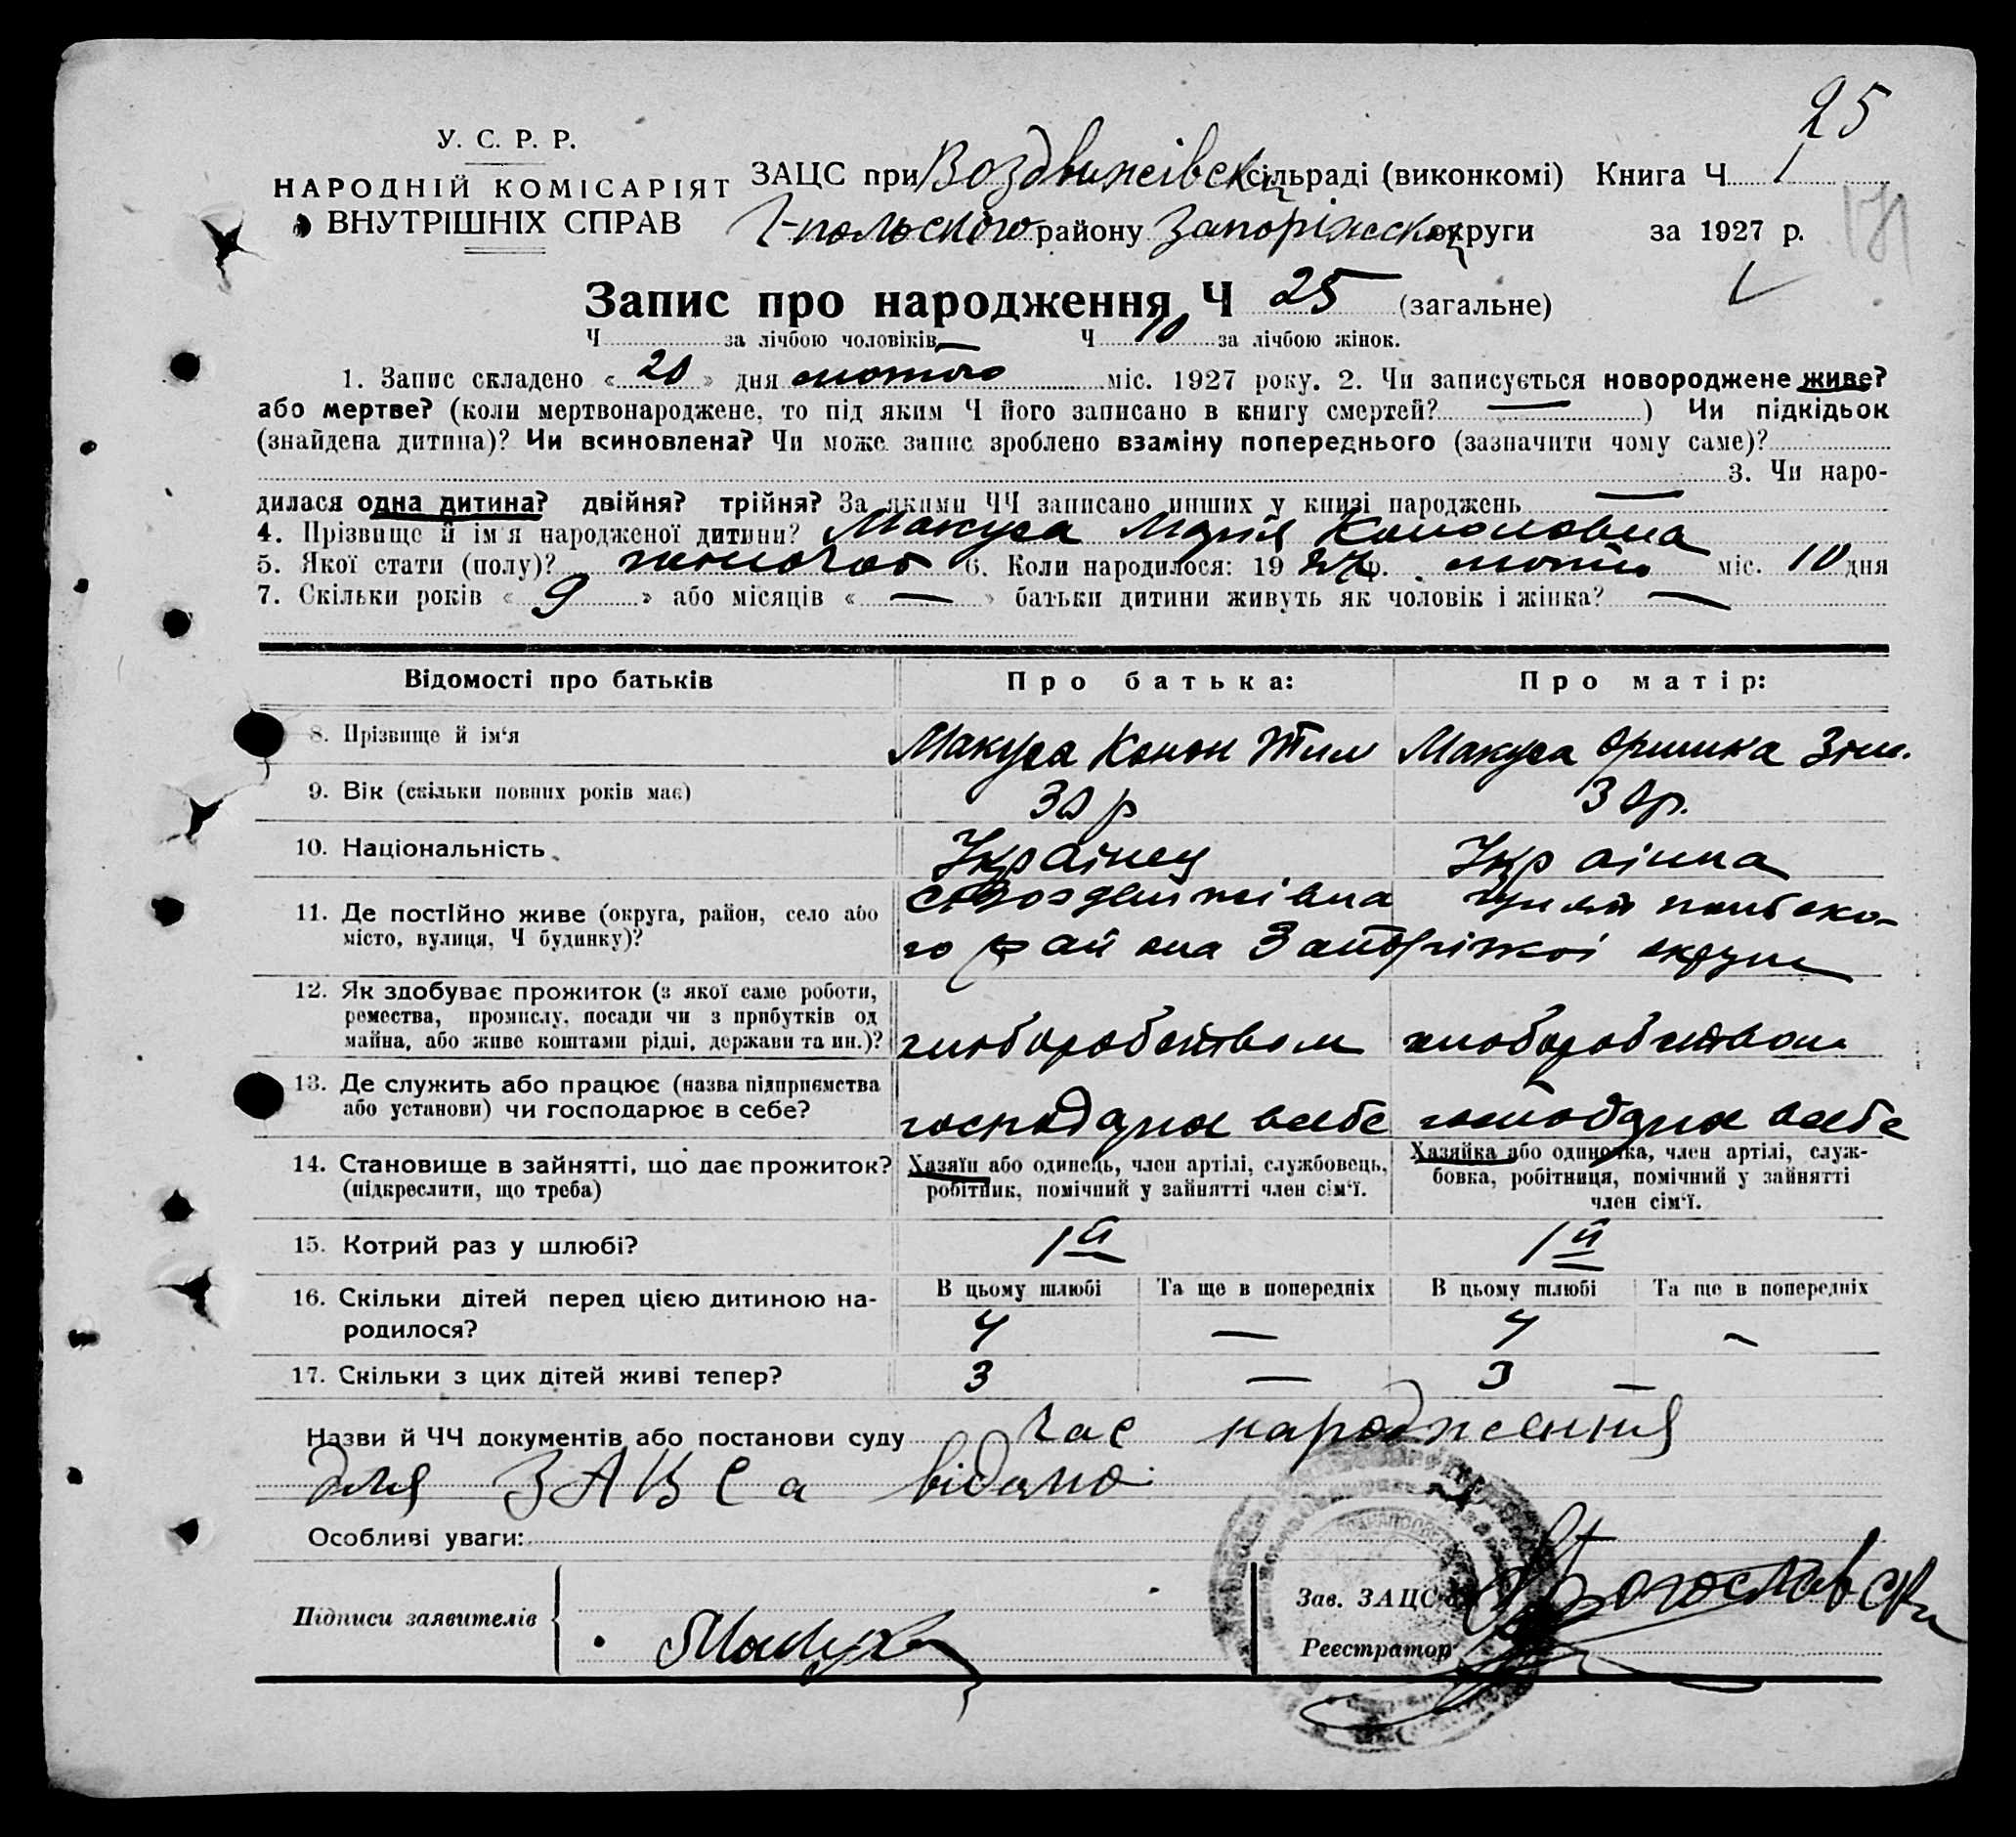 25
У. С. Р. Р.
НАРОДНІЙ КОМІСАРІЯТ
ВНУТРІШНІХ СПРАВ
ЗАЦС при Воздвижівскі сільраді (виконкомі) Книга Ч 1
Г-польского району Запоріжскої округи за 1927 р.
171
Запис про народження Ч 25 (загальне)
Ч за лічбою чоловіків — Ч 10 за лічбою жінок.
1. Запис складено « 20 » дня лютого міс. 1927 року. 2. Чи записується новороджене живе?
або мертве? (коли мертвонароджене, то під яким Ч його записано в книгу смертей? — ) Чи підкідьок
(знайдена дитина)? Чи всиновлена? Чи може запис зроблено взаміну попереднього (зазначити чому саме)?
3. Чи наро-
дилася одна дитина? двійня? трійня? За якими ЧЧ записано инших у книзі народжень —
4. Прізвище й ім'я народженої дитини? Макуха Марія Кононовна
5. Якої стати (полу)? жіночої 6. Коли народилося: 19 27 р. лютого міс. 10 дня
7. Скільки років « 9 » або місяців « — » батьки дитини живуть як чоловік і жінка? —
Відомості про батьків Про батька: Про матір:
8. Прізвище й ім'я Макуха Конон Тим Макуха Оришка Зін.
9. Вік (скільки повних років має) 30 р 30р.
10. Національність Українец Українка
11. Де постійно живе (округа, район, село або с Воздвижівка Гуляй польско-
місто, вулиця, Ч будинку)? го району Запоріжкої округи
12. Як здобуває прожиток (з якої саме роботи,
ремества, промислу, посади чи з прибутків од
майна, або живе коштами рідні, держави та ин.)? хлоборобством хлоборобством
13. Де служить або працює (назва підприємства
або установи) чи господарює в себе? господарює в себе господарює в себе
14. Становище в зайнятті, що дає прожиток? Хазяїн або одинець, член артілі, службовець, Хазяйка або одиночка, член артілі, служ-
(підкреслити, що треба) робітник, помічний у зайнятті член сім'ї. бовка, робітниця, помічний у зайнятті
член сім'ї.
15. Котрий раз у шлюбі? 1й 1й
16. Скільки дітей перед цією дитиною на- В цьому шлюбі Та ще в попередніх В цьому шлюбі Та ще в попередніх
родилося? 4 — 4 —
17. Скільки з цих дітей живі тепер? 3 — 3 —
Назви й ЧЧ документів або постанови суду час народження
для ЗАВСа відомо
Особливі уваги:
Підписи заявителів Макуха
Зав. ЗАЦС'ом Богославск
Реєстратор